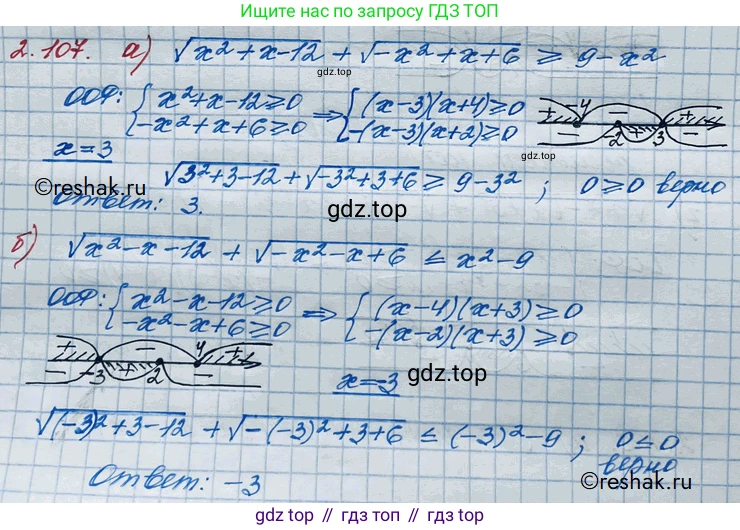 Ищите нас по запросу ГДЗ ТОП
2.107. а) √(x²+x-12) + √(-x²+x+6) ≥ 9-x²
gdz.top
ООФ: { x²+x-12≥0 ⇒ { (x-3)(x+4)≥0
{ -x²+x+6≥0 { -(x-3)(x+2)≥0
+ -4 - +
- -2 + 3 -
gdz.top
x=3
√(3²+3-12) + √(-3²+3+6) ≥ 9-3² ; 0≥0 верно
©reshak.ru
Ответ: 3.
gdz.top
б) √(x²-x-12) + √(-x²-x+6) ≤ x²-9
ООФ: { x²-x-12≥0 ⇒ { (x-4)(x+3)≥0
{ -x²-x+6≥0 { -(x-2)(x+3)≥0
+ - 4 +
- -3 + 2 -
x=-3
gdz.top
√((-3)²+3-12) + √(-(-3)²+3+6) ≤ (-3)²-9 ; 0≤0
верно
Ответ: -3
©reshak.ru
gdz top // gdz top // gdz top